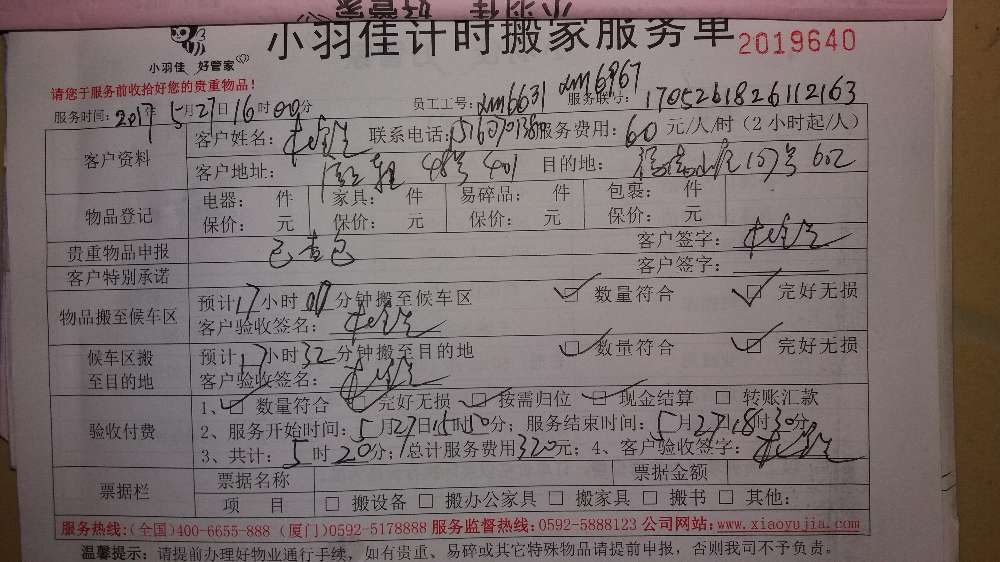 小羽佳 好管家
小羽佳计时搬家服务单 2019640
小羽佳 好管家
请您于服务前收拾好您的贵重物品!
员工工号: dm6631 dm6967 服务联号: 1705261826112163
服务时间: 2017年 5月27日16时00分
客户资料 客户姓名: 联系电话: 服务费用: 60 元/人/时 (2小时起/人)
客户地址: 48号 401 目的地: 107号 602
物品登记 电器: 件 家具: 件 易碎品: 件 包裹: 件
保价: 元 保价: 元 保价: 元 保价: 元
贵重物品申报 已查包 客户签字:
客户特别承诺 客户签字:
物品搬至候车区 预计17小时00分钟搬至候车区 ☑ 数量符合 ☑ 完好无损
客户验收签名:
候车区搬至目的地 预计17小时32分钟搬至目的地 ☑ 数量符合 ☑ 完好无损
客户验收签名:
验收付费 1、☑ 数量符合 ☑ 完好无损 ☑ 按需归位 ☑ 现金结算 □ 转账汇款
2、服务开始时间: 5月27日15时50分; 服务结束时间: 5月27日18时30分
3、共计: 5时20分; 总计服务费用320元; 4、客户验收签字:
票据栏 票据名称 票据金额
项 目 □ 搬设备 □ 搬办公家具 □ 搬家具 □ 搬书 □ 其他:
服务热线:(全国)400-6655-888 (厦门)0592-5178888 服务监督热线:0592-5888123 公司网站:www.xiaoyujia.com
温馨提示: 请提前办理好物业通行手续, 如有贵重、易碎或其它特殊物品请提前申报, 否则我司不予负责。